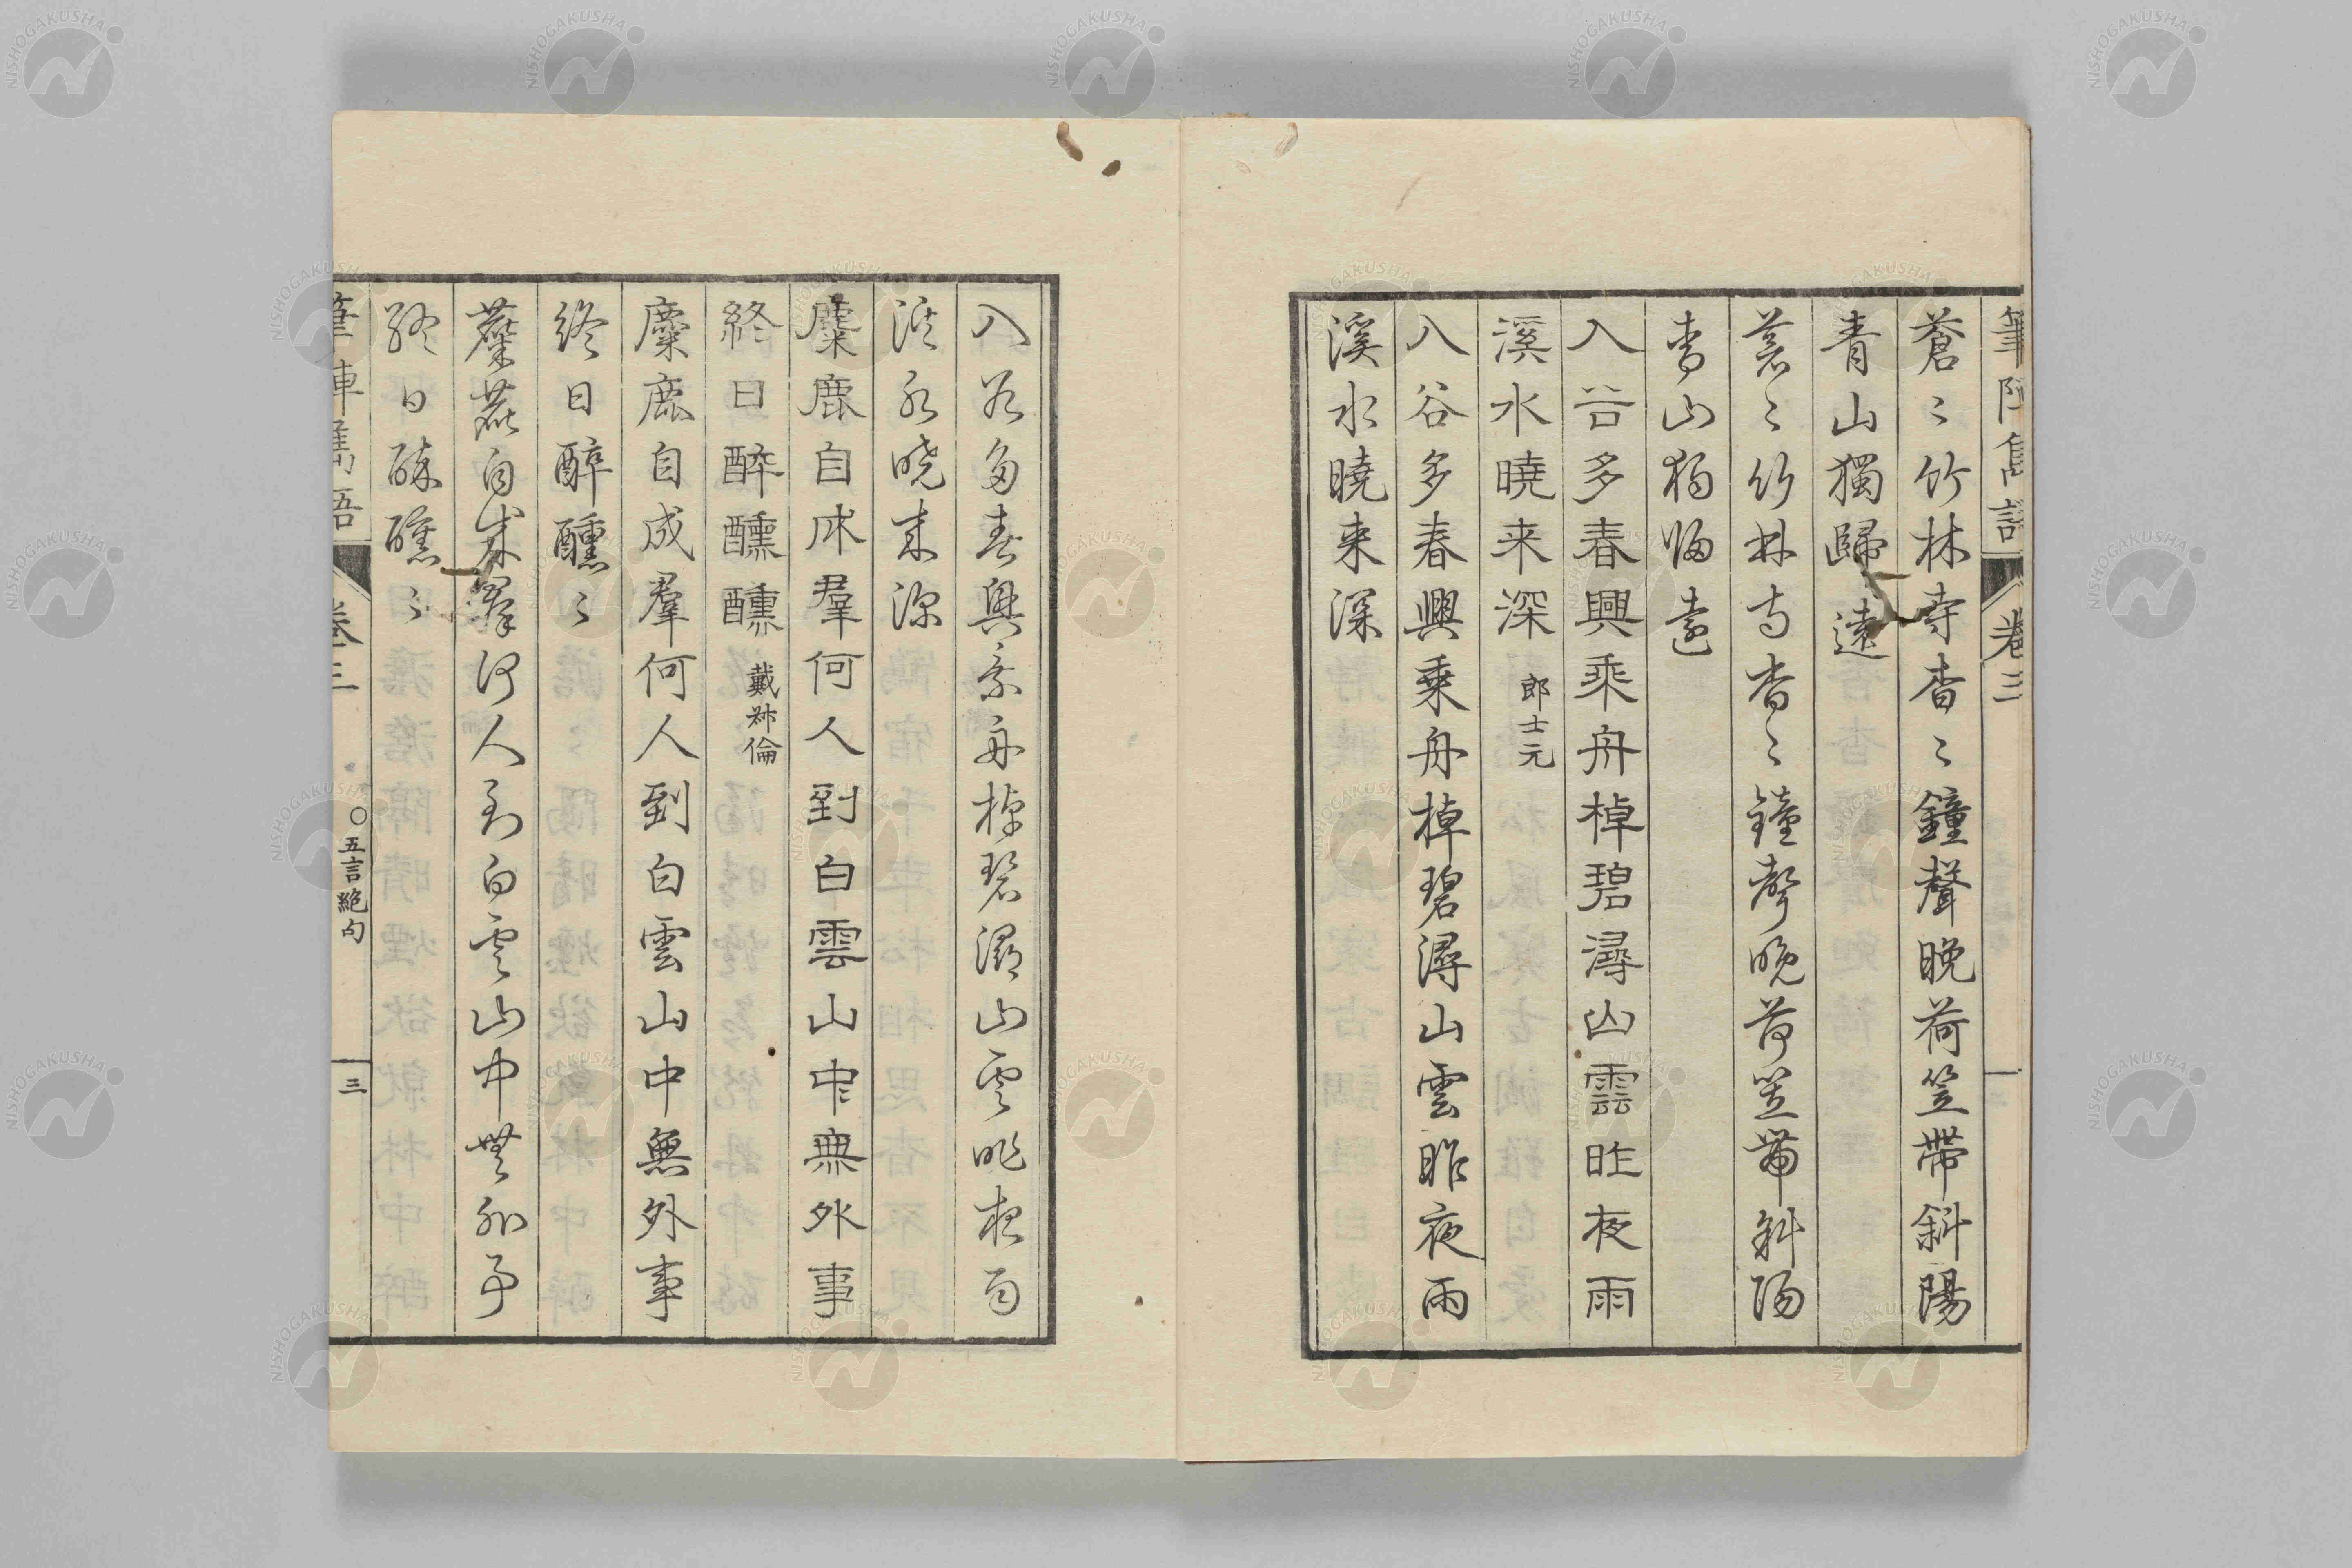 筆陣雋語 卷三
蒼〻竹林寺杳〻鐘聲晚荷笠帶斜陽
青山獨歸遠
蒼〻竹林寺杳〻鐘聲晚荷笠帶斜陽
青山獨歸遠
入谷多春興乘舟棹碧潯山雲昨夜雨
溪水曉来深 郎士元
入谷多春興乘舟棹碧潯山雲昨夜雨
溪水曉来深
入谷多春興乘舟棹碧潯山雲昨夜雨
溪水曉来深
麋鹿自成羣何人到白雲山中無外事
終日醉醺醺 戴叔倫
麋鹿自成羣何人到白雲山中無外事
終日醉醺〻
麋鹿自成羣何人到白雲山中無外事
終日醉醺〻
筆陣雋語 卷三 〇五言絶句 三
NISHOGAKUSHA